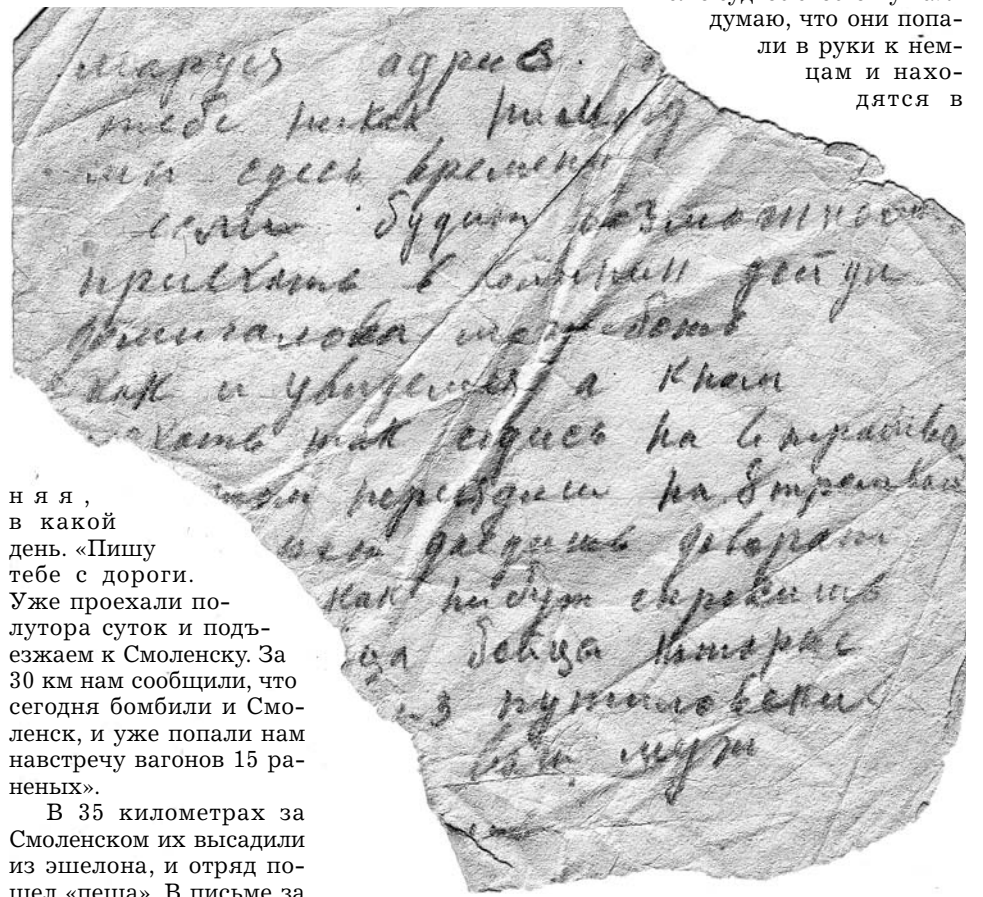 думаю, что они попа-
ли в руки к нем-
цам и нахо-
дятся в
маруся адрис
тебе никак
мы сдесь времени
если будит возможнос
приехать в дойди
может быть
как и увидемся а кнам
ехать так садись на трамвай
пересядиш на 8 трамвай
доедишь доворот
как нибуж спросишь
бойца которые
из путиловски
ваш муж
няя,
в какой
день. «Пишу
тебе с дороги.
Уже проехали по-
лутора суток и подъ-
езжаем к Смоленску. За
30 км нам сообщили, что
сегодня бомбили и Смо-
ленск, и уже попали нам
навстречу вагонов 15 ра-
неных».
В 35 километрах за
Смоленском их высадили
из эшелона, и отряд по-
шел «пеша». В письме за